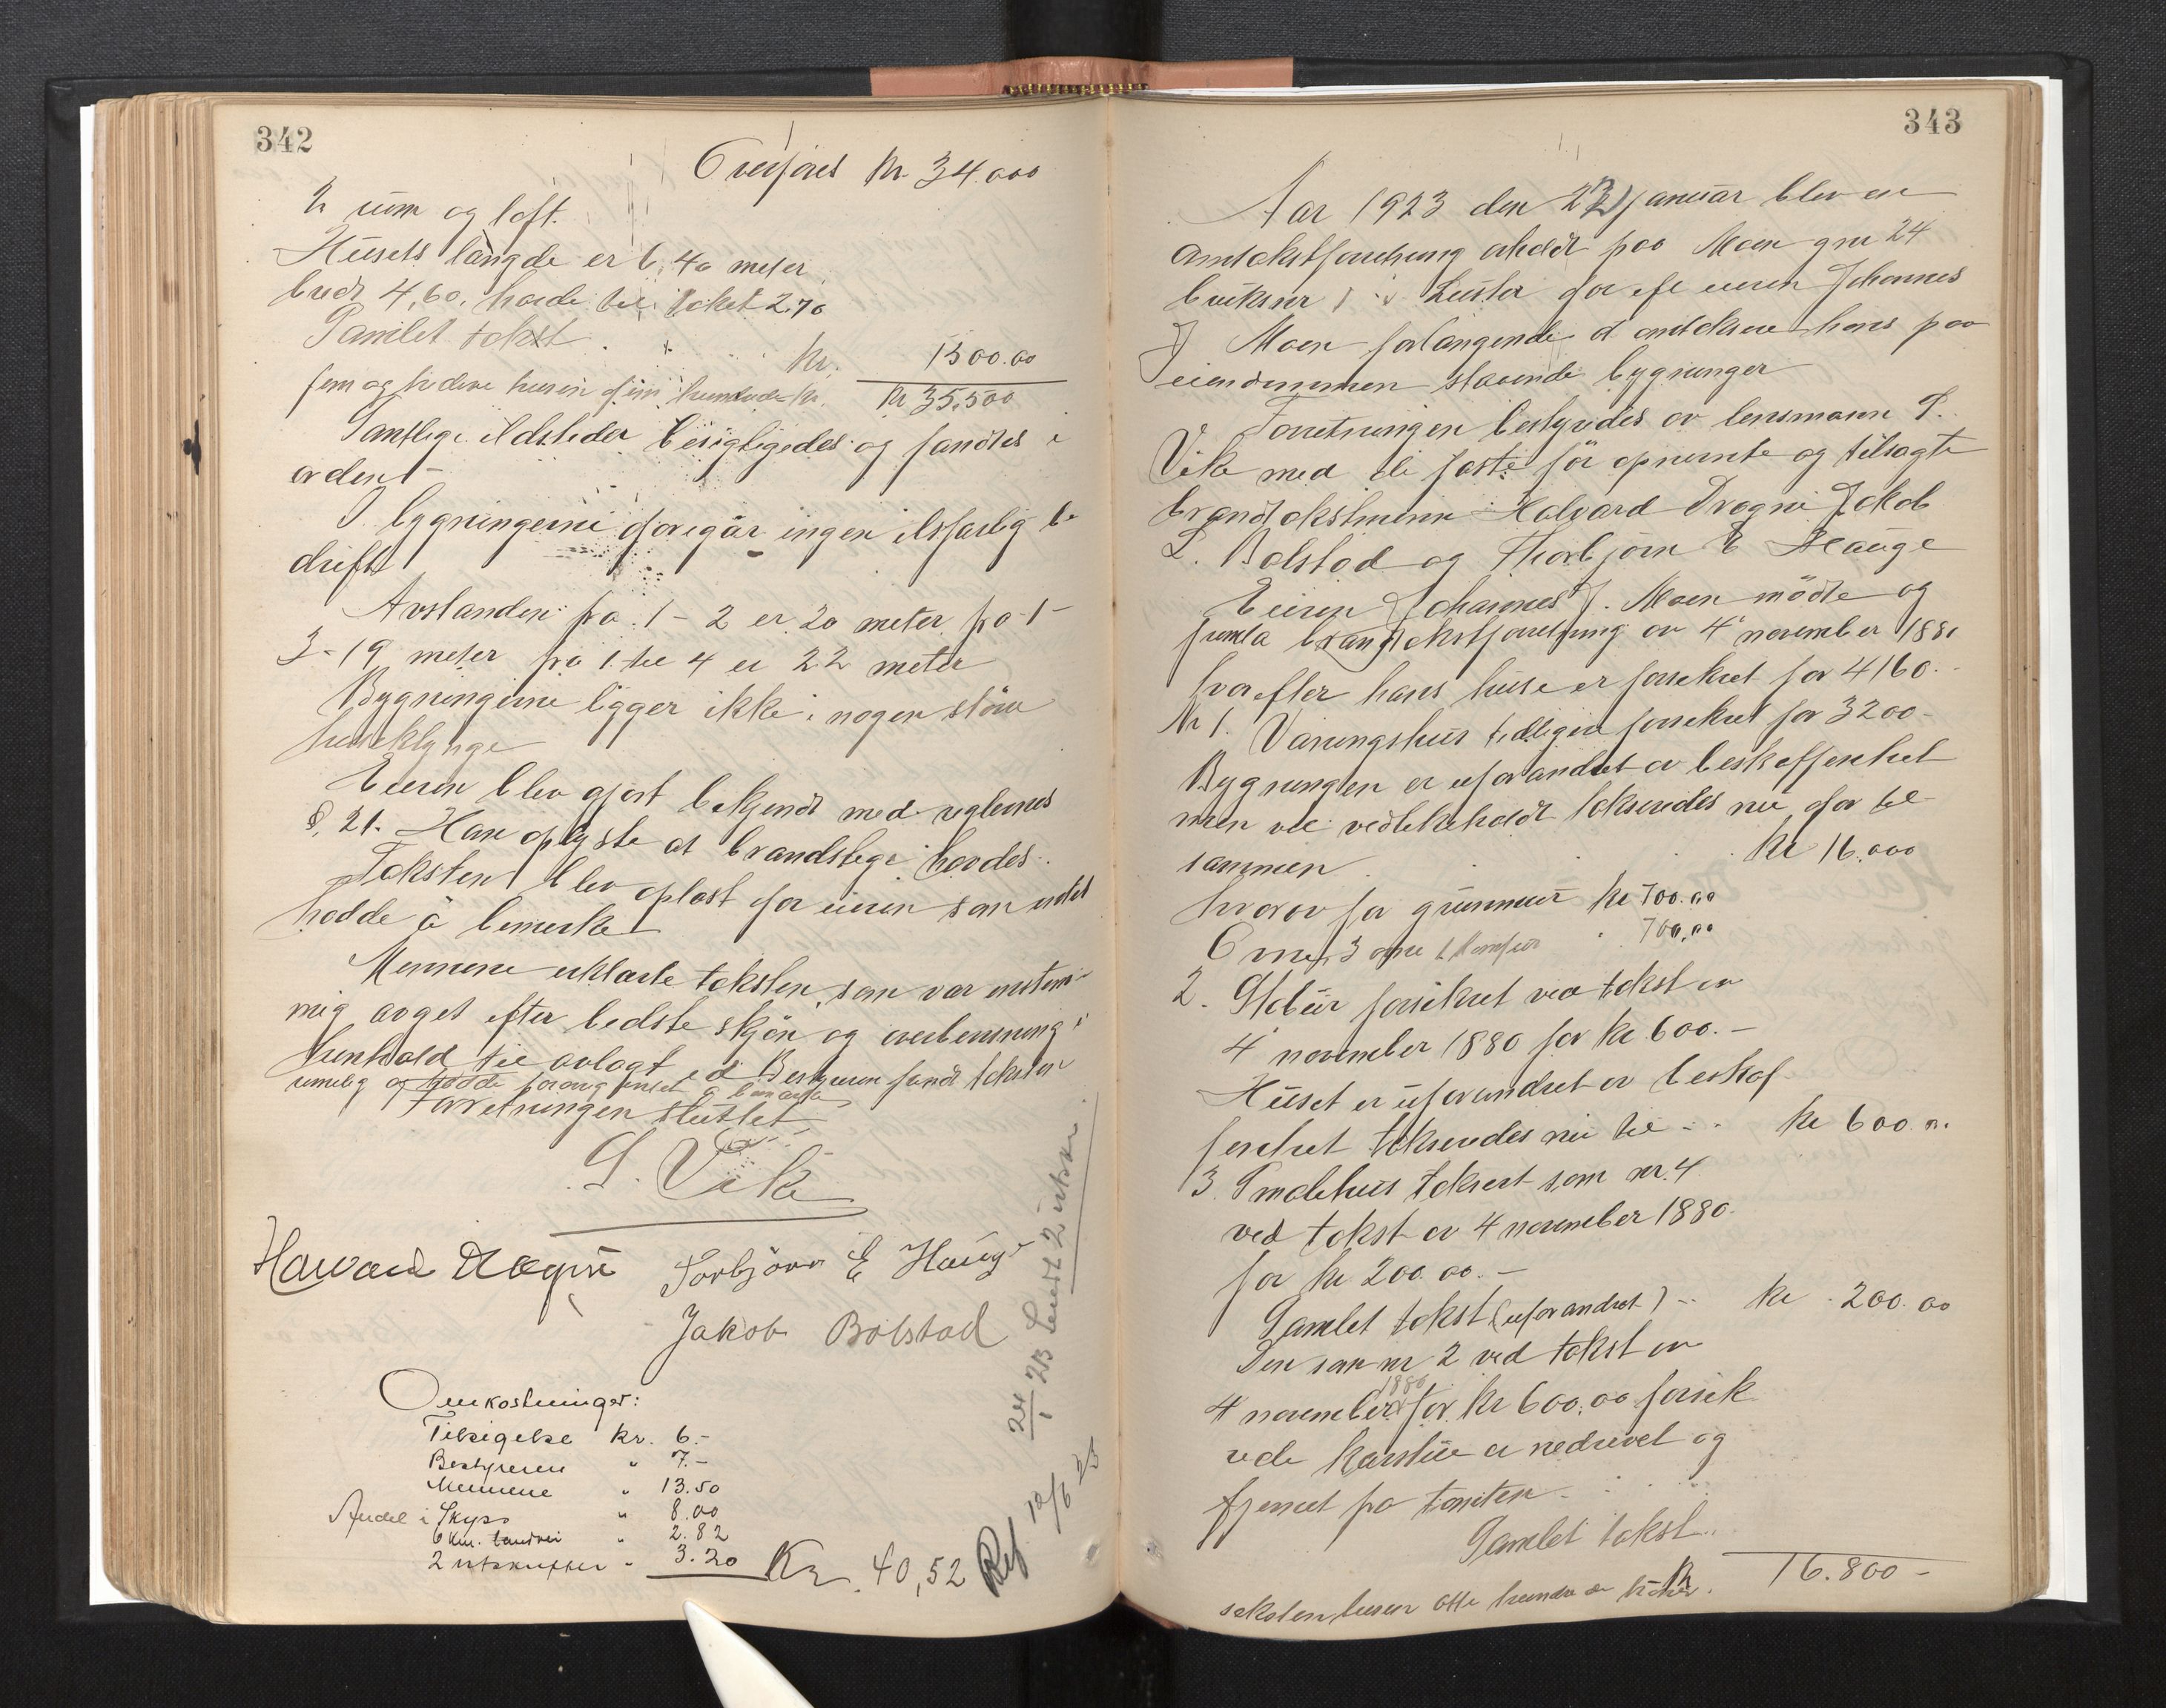 342
Overføres kr. 34.000
2 rum og loft.
Husets længde er 6,40 meter
bredt 4,60, høide til taket 2.70
Samlet takst . . . kr. 1500.00
fem og tredive tusen fem hundrede kr. kr 35,500
Samtlige ildsteder besigtigedes og fandtes i
orden
I bygningerne foregår ingen ilsfarlig be
drift
Avstanden fra 1 - 2 er 20 meter fra 1 -
3 - 19 meter fra 1 til 4 er 22 meter
Bygningerne ligger ikke i nogen større
huseklynge
Eieren blev gjort bekjendt med reglernes
§. 21. Han oplyste at brandstege havdes.
Taksten blev oplæst for eieren som intet
hadde å bemerke
Mennene erklærte taksten, som var enstem-
mig avget efter bedste skjøn og overbevisning i
henhold til avlagt ed Bestyreren fandt taksten
rimelig og hadde forøvrig intet å bemerke
Forretningen sluttet
S. Vik
Havard Drægni Torbjørn E Hauge
Jakob Bolstad
24/1 23 2 utskr.
Omkostninger:
Tilsigelse kr. 6.-
Bestyreren " 7.-
Mennene " 13.50
Andel i Skyss " 8.00
6 km. landvei " 2.82
2 utskrifter " 3.20 Kr. 40,52
Ref 10/6 23
343
Aar 1923 den 22 januar blev en
omtakstforretning avholdt paa Moen gnr 24
bruksnr 1 i Luster for efter eieren Johannes
J Moen forlangende at omtaksere hans paa
eiendommen staaende bygninger
Forretningen bestyredes av lensmann S.
Vik med de faste før opnevnte og tilsagte
brandtakstmenn Halvard Drægni Jakob
L. Bolstad og Thorbjørn E Hauge
Eieren Johannes J. Moen møtte og
fremla brandtakstforretning av 4 november 1880
hvorefter hans huse er forsikret for 4160.-
Nr 1. Våningshus tidligere forsikret for 3200-
Bygningen er uforandret av beskaffenhet
men vel vedlikeholdt takseredes nu for til-
sammen . . . kr 16.000
hvorav for grunmur kr 700.00
Ovner 3 " 700,00
2. Stabur forsikret ved takst av
4 november 1880 for kr 600.-
Huset er uforandret av beskaf
fenhet takseredes nu til - - kr 600.00
3. Smalehus taksert som nr. 4
ved takst av 4 november 1880
for kr 200.00.-
Samlet takst (uforandret) - - kr 200.00
Den som nr 2 ved takst av
4 november 1880 for kr 600.00 forsik
rede karstue er nedrevet og
fjernet fra tomten
Samlet takst . .
kr 16.800 -
seksten tusen otte hundrede kroner.